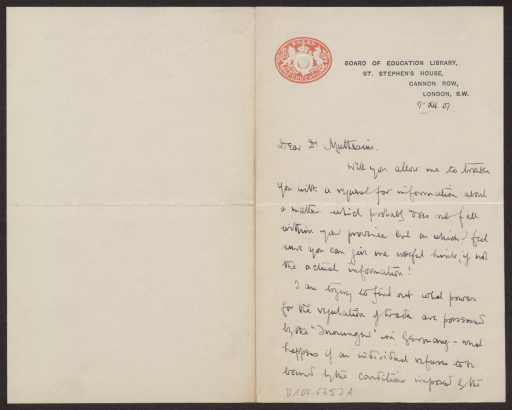 BOARD OF EDUCATION LIBRARY,
ST. STEPHEN'S HOUSE,
CANNON ROW,
LONDON, S.W.
07
Dear Dr Muthesius.
Will you allow me to trouble
you with a request for information about
a matter which probably does not fall
within your province but on which I feel
sure you can give me useful hints, if not
the actual information!
I am trying to find out what powers
for the regulation of trade are possessed
by the "Innungen" in Germany - what
happens if an individual refuses to be
bound by the conditions imposed by the